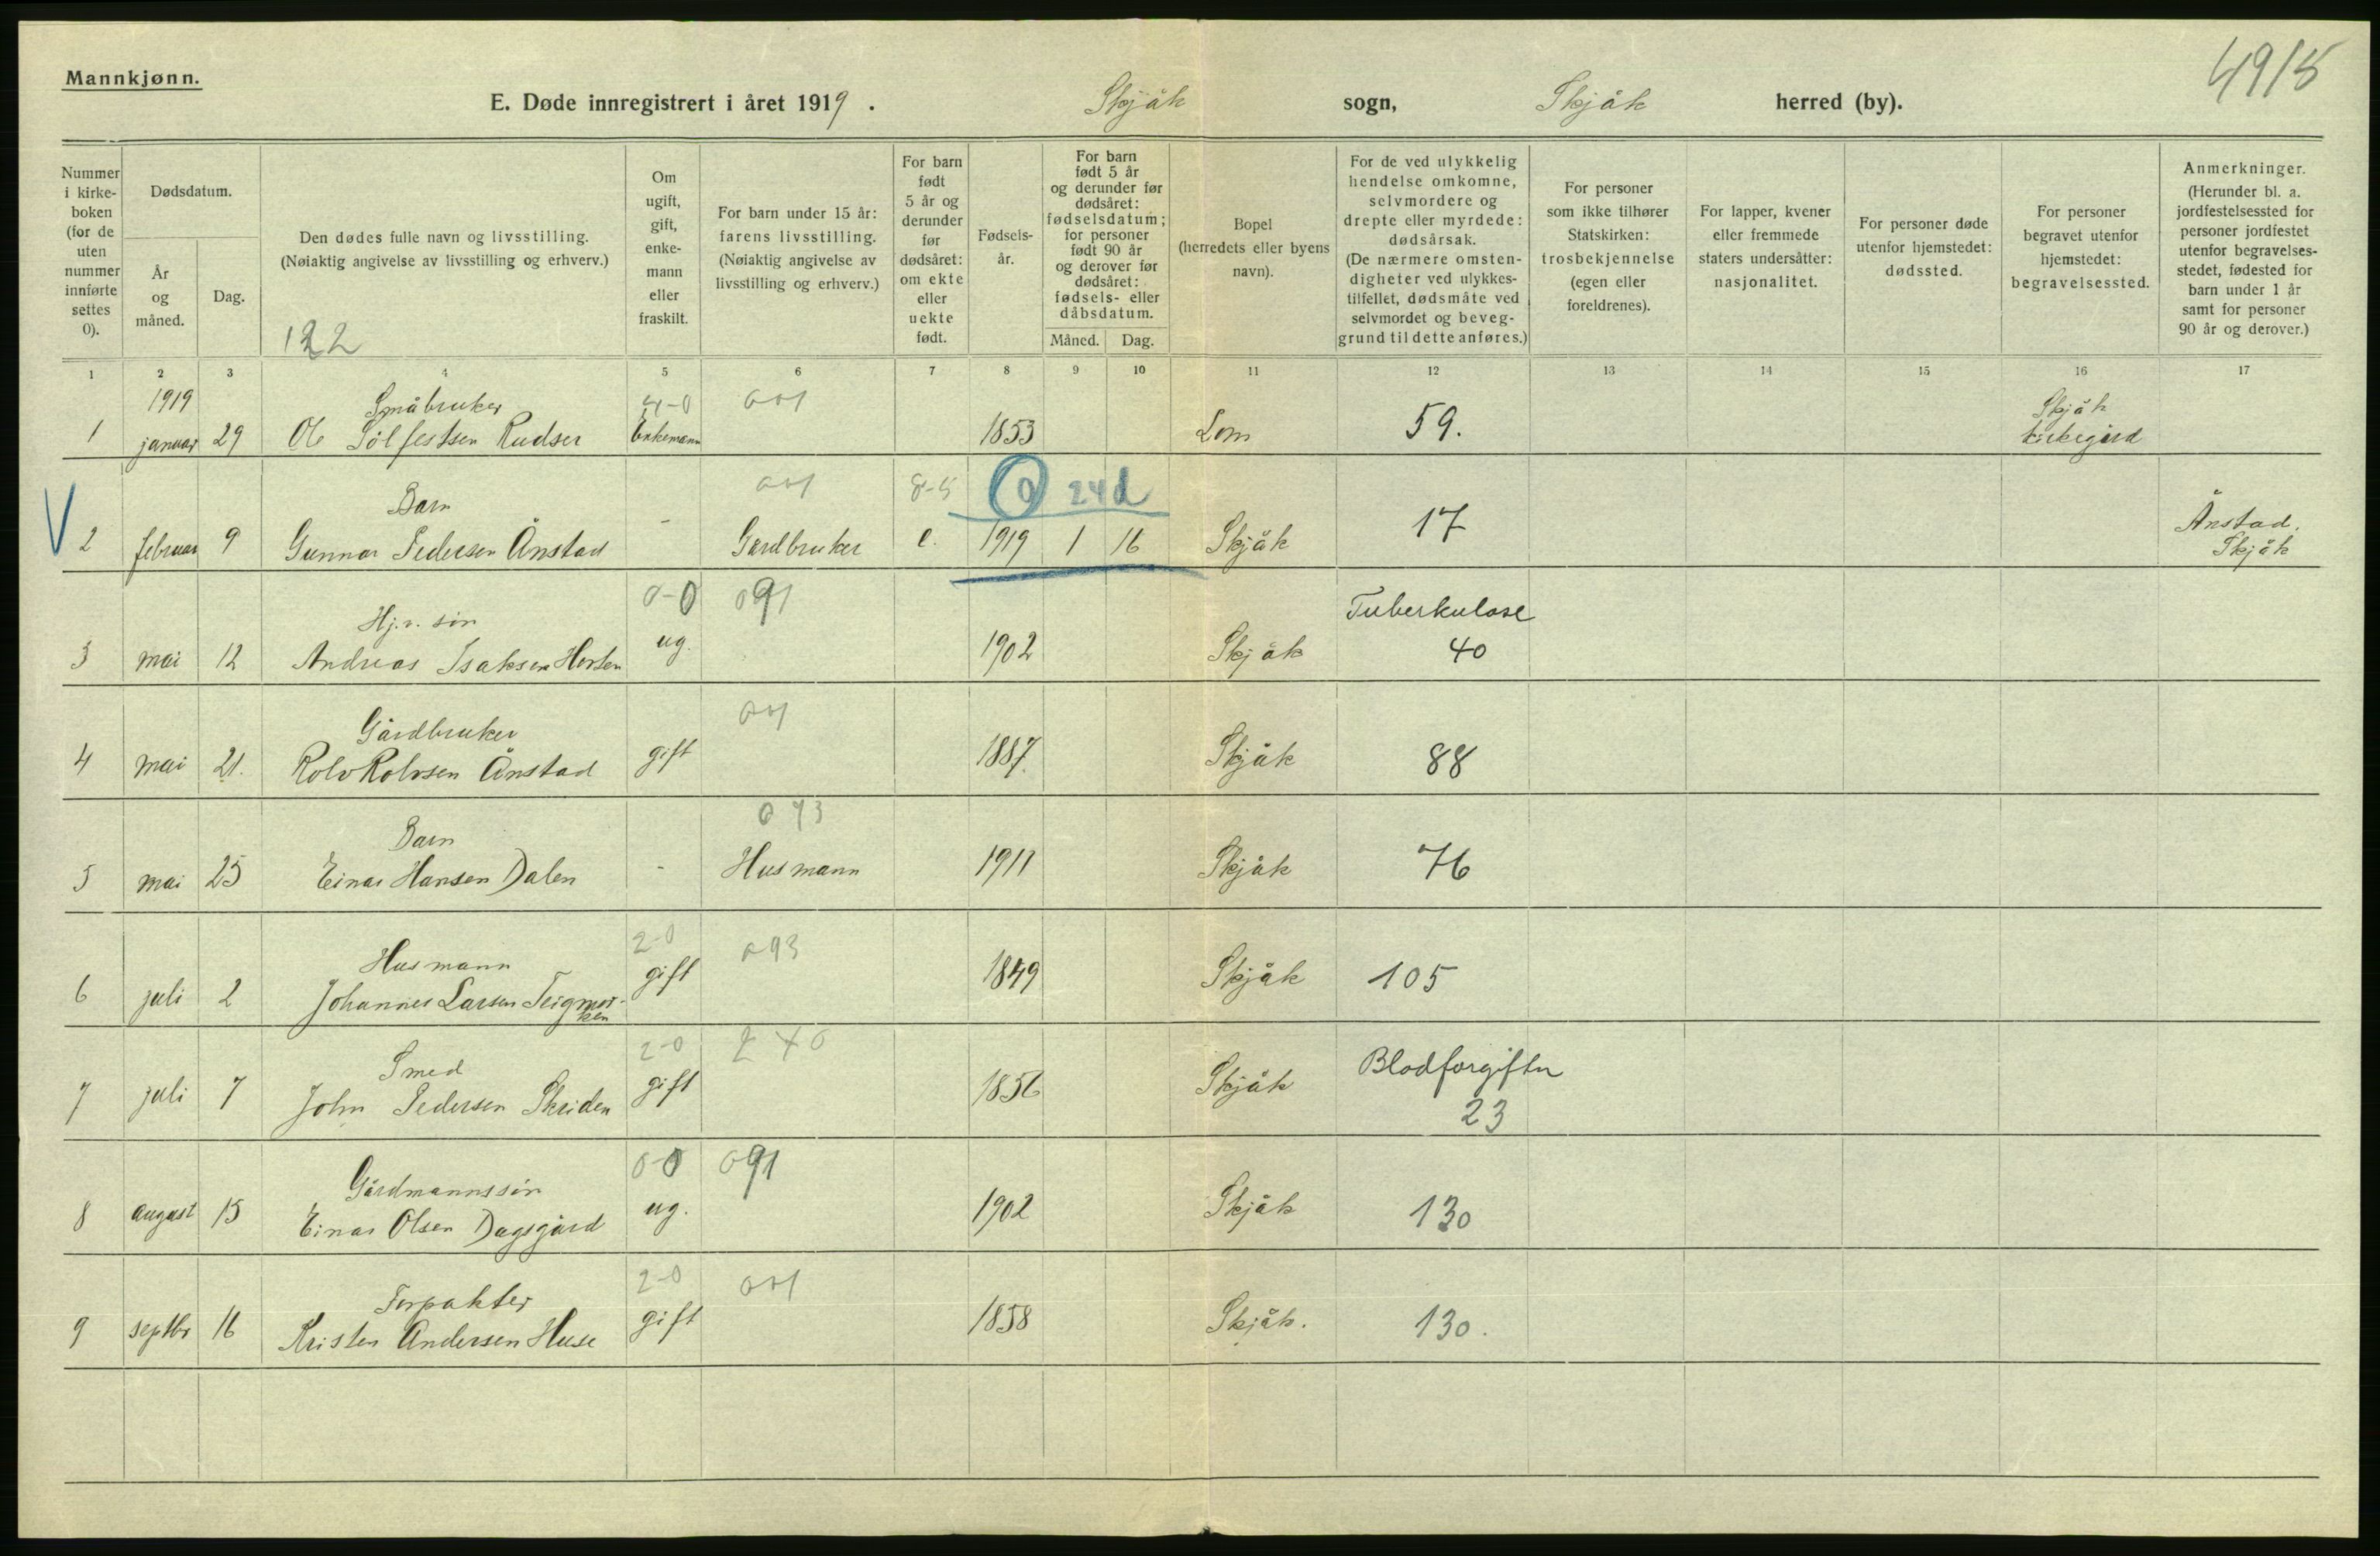 Mannkjønn.
4915
E. Døde innregistrert i året 1919. Skjåk sogn, Skjåk herred (by).
Nummer i kirkeboken (for de uten nummer innførte settes 0).
Dødsdatum.
År og måned.
Dag.
Den dødes fulle navn og livsstilling.
(Nøiaktig angivelse av livsstilling og erhverv.)
122
Om ugift, gift, enkemann eller fraskilt.
For barn under 15 år: farens livsstilling. (Nøiaktig angivelse av livsstilling og erhverv.)
For barn født 5 år og derunder før dødsåret: om ekte eller uekte født.
Fødselsår.
For barn født 5 år og derunder før dødsåret: fødselsdatum; for personer født 90 år og derover før dødsåret: fødsels- eller dåbsdatum.
Måned. Dag.
Bopel (herredets eller byens navn).
For de ved ulykkelig hendelse omkomne, selvmordere og drepte eller myrdede: dødsårsak. (De nærmere omstendigheter ved ulykkestilfellet, dødsmåte ved selvmordet og beveggrund til dette anføres.)
For personer som ikke tilhører Statskirken: trosbekjennelse (egen eller foreldrenes).
For lapper, kvener eller fremmede staters undersåtter: nasjonalitet.
For personer døde utenfor hjemstedet: dødssted.
For personer begravet utenfor hjemstedet: begravelsessted.
Anmerkninger. (Herunder bl. a. jordfestelsessted for personer jordfestet utenfor begravelsesstedet, fødested for barn under 1 år samt for personer 90 år og derover.)
1 2 3 4 5 6 7 8 9 10 11 12 13 14 15 16 17
1919 Småbruker 4-0 Skjåk
1 januar 29 Ole Sølfestsen Rudser Enkemann 1853 Lom 59. kirkegård
Barn 8-5 0 24 d
2 februar 9 Gunnar Pedersen Ånstad - Gardbruker e. 1919 1 16 Skjåk 17 Ånstad, Skjåk
0-0 091 Tuberkulose
3 mai 12 Andreas Isaksen Horten ug. 1902 Skjåk 40
Gårdbruker
4 mai 21. Rolv Rolvsen Ånstad gift 1887 Skjåk 88
Barn 093
5 mai 25 Einar Hansen Dalen - Husmann 1911 Skjåk 76
Husmann 2-0 093
6 juli 2 Johannes Larsen Teigmorken gift 1849 Skjåk 105
Smed 2-0 240 Blodforgiftn
7 juli 7 John Pedersen Skriden gift 1856 Skjåk 23
Gårdmannssøn 0-0 091
8 august 15 Einar Olsen Dagsgård ug. 1902 Skjåk 130
Forpakter 2-0
9 septbr 16 Kristen Andersen Huse gift 1858 Skjåk. 130.